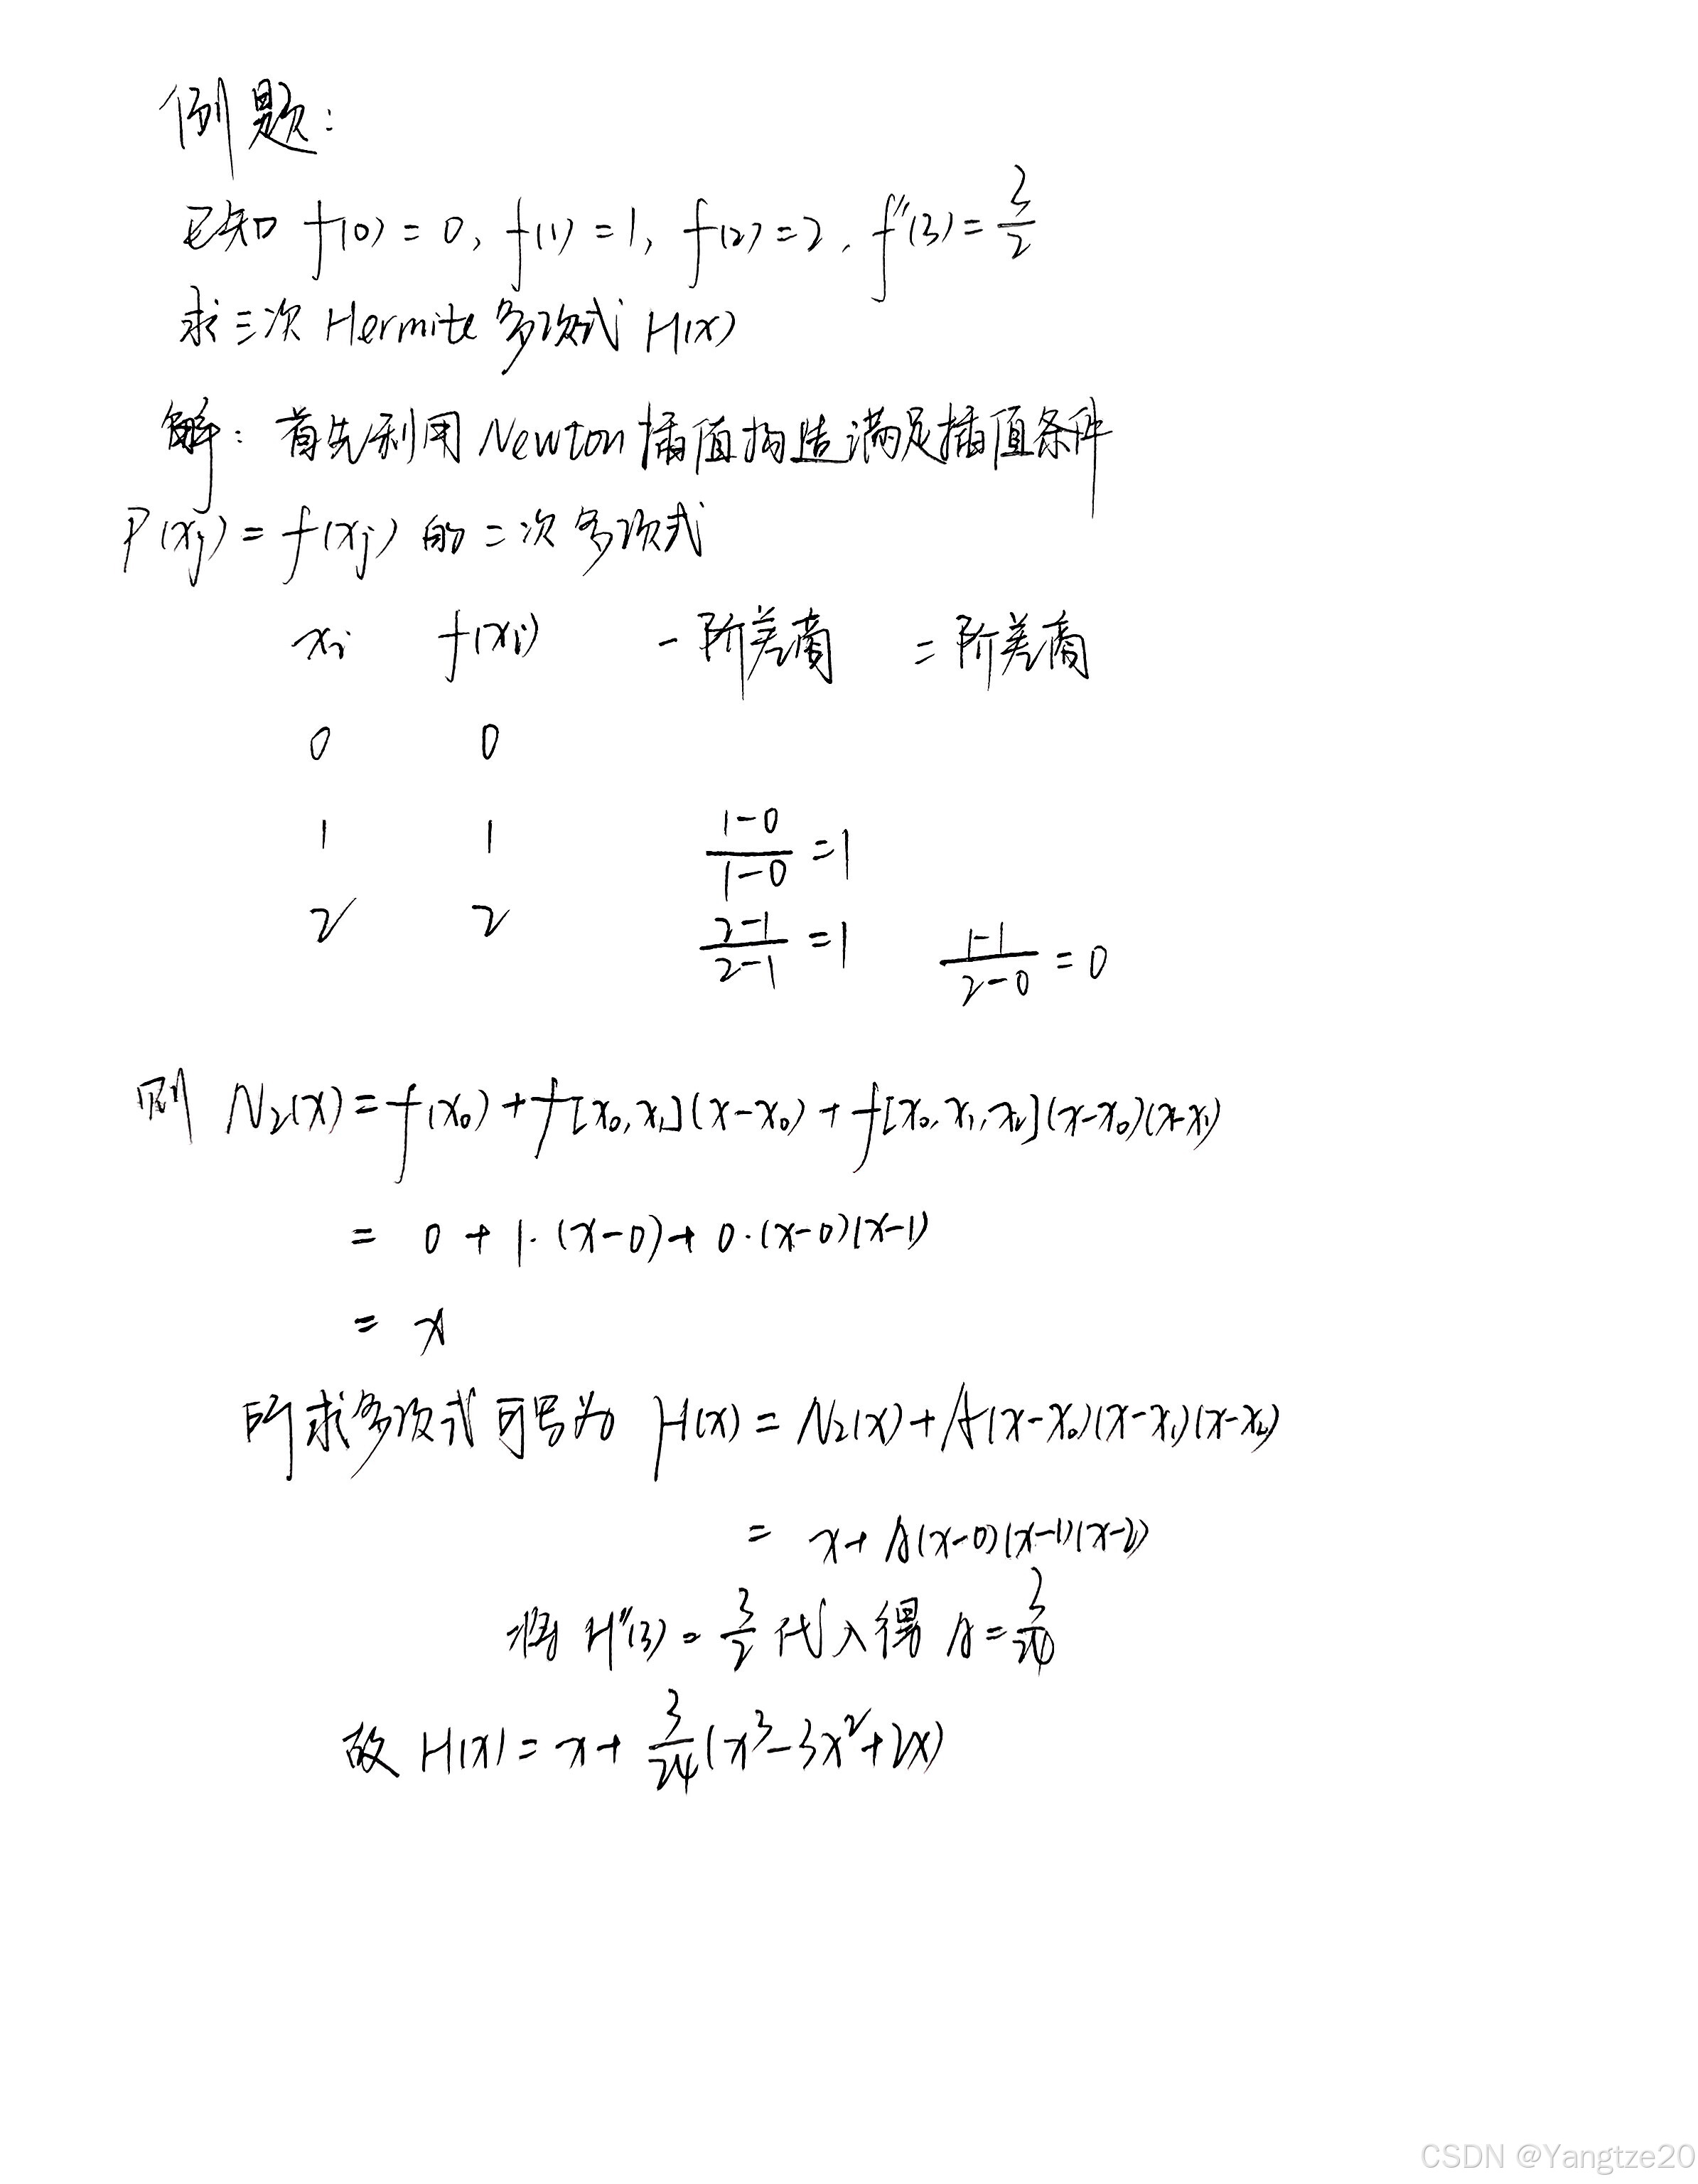 例题:
已知 f(0)=0, f(1)=1, f(2)=2, f''(3)=3/2
求三次 Hermite 多项式 H(x)
解: 首先利用 Newton 插值构造满足插值条件
P(xj)=f(xj) 的二次多项式
xi f(xi) 一阶差商 二阶差商
0 0
1 1 (1-0)/(1-0)=1
2 2 (2-1)/(2-1)=1 (1-1)/(2-0)=0
则 N₂(x)=f(x₀)+f[x₀,x₁](x-x₀)+f[x₀,x₁,x₂](x-x₀)(x-x₁)
= 0+1·(x-0)+0·(x-0)(x-1)
= x
所求多项式可写为 H(x)=N₂(x)+A(x-x₀)(x-x₁)(x-x₂)
= x+A(x-0)(x-1)(x-2)
将 H''(3)=3/2 代入得 A=3/24
故 H(x)=x+3/24(x³-3x²+2x)
CSDN @Yangtze20